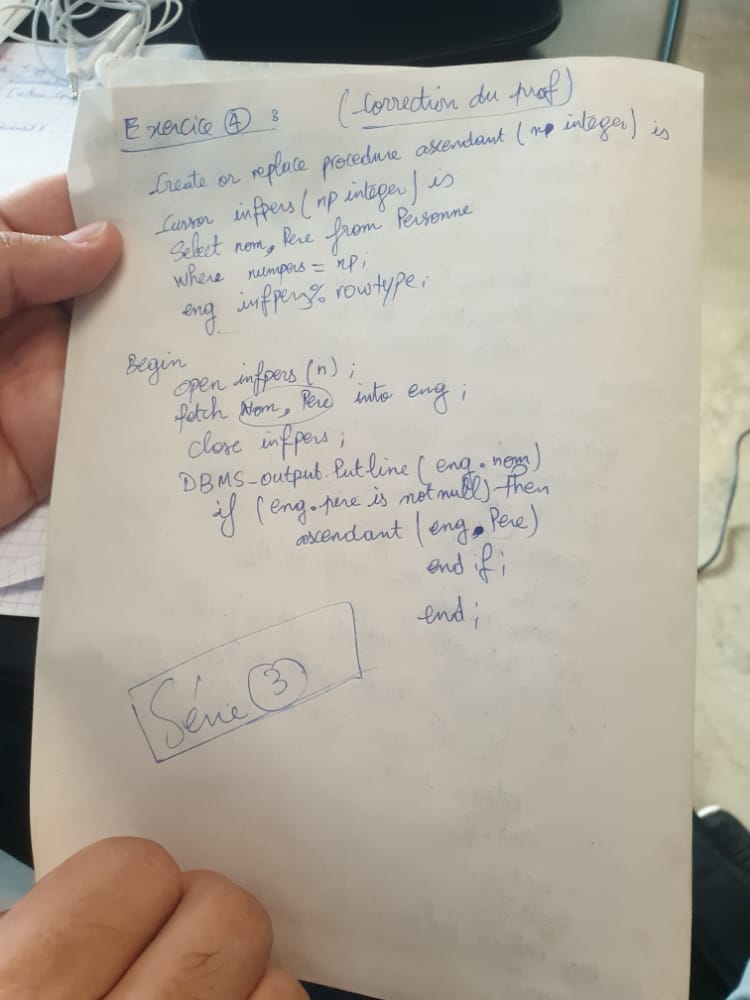 Exercice 4 : (Correction du prof)
Create or replace procedure ascendant (np integer) is
Cursor infpers (np integer) is
Select nom, Pere from Personne
where numpers = np;
eng infpers%rowtype;
Begin
open infpers (n);
fetch Nom, Pere into eng;
close infpers;
DBMS_output.Put line (eng.nom)
if (eng.pere is not null) then
ascendant (eng.Pere)
end if;
end;
Série 3